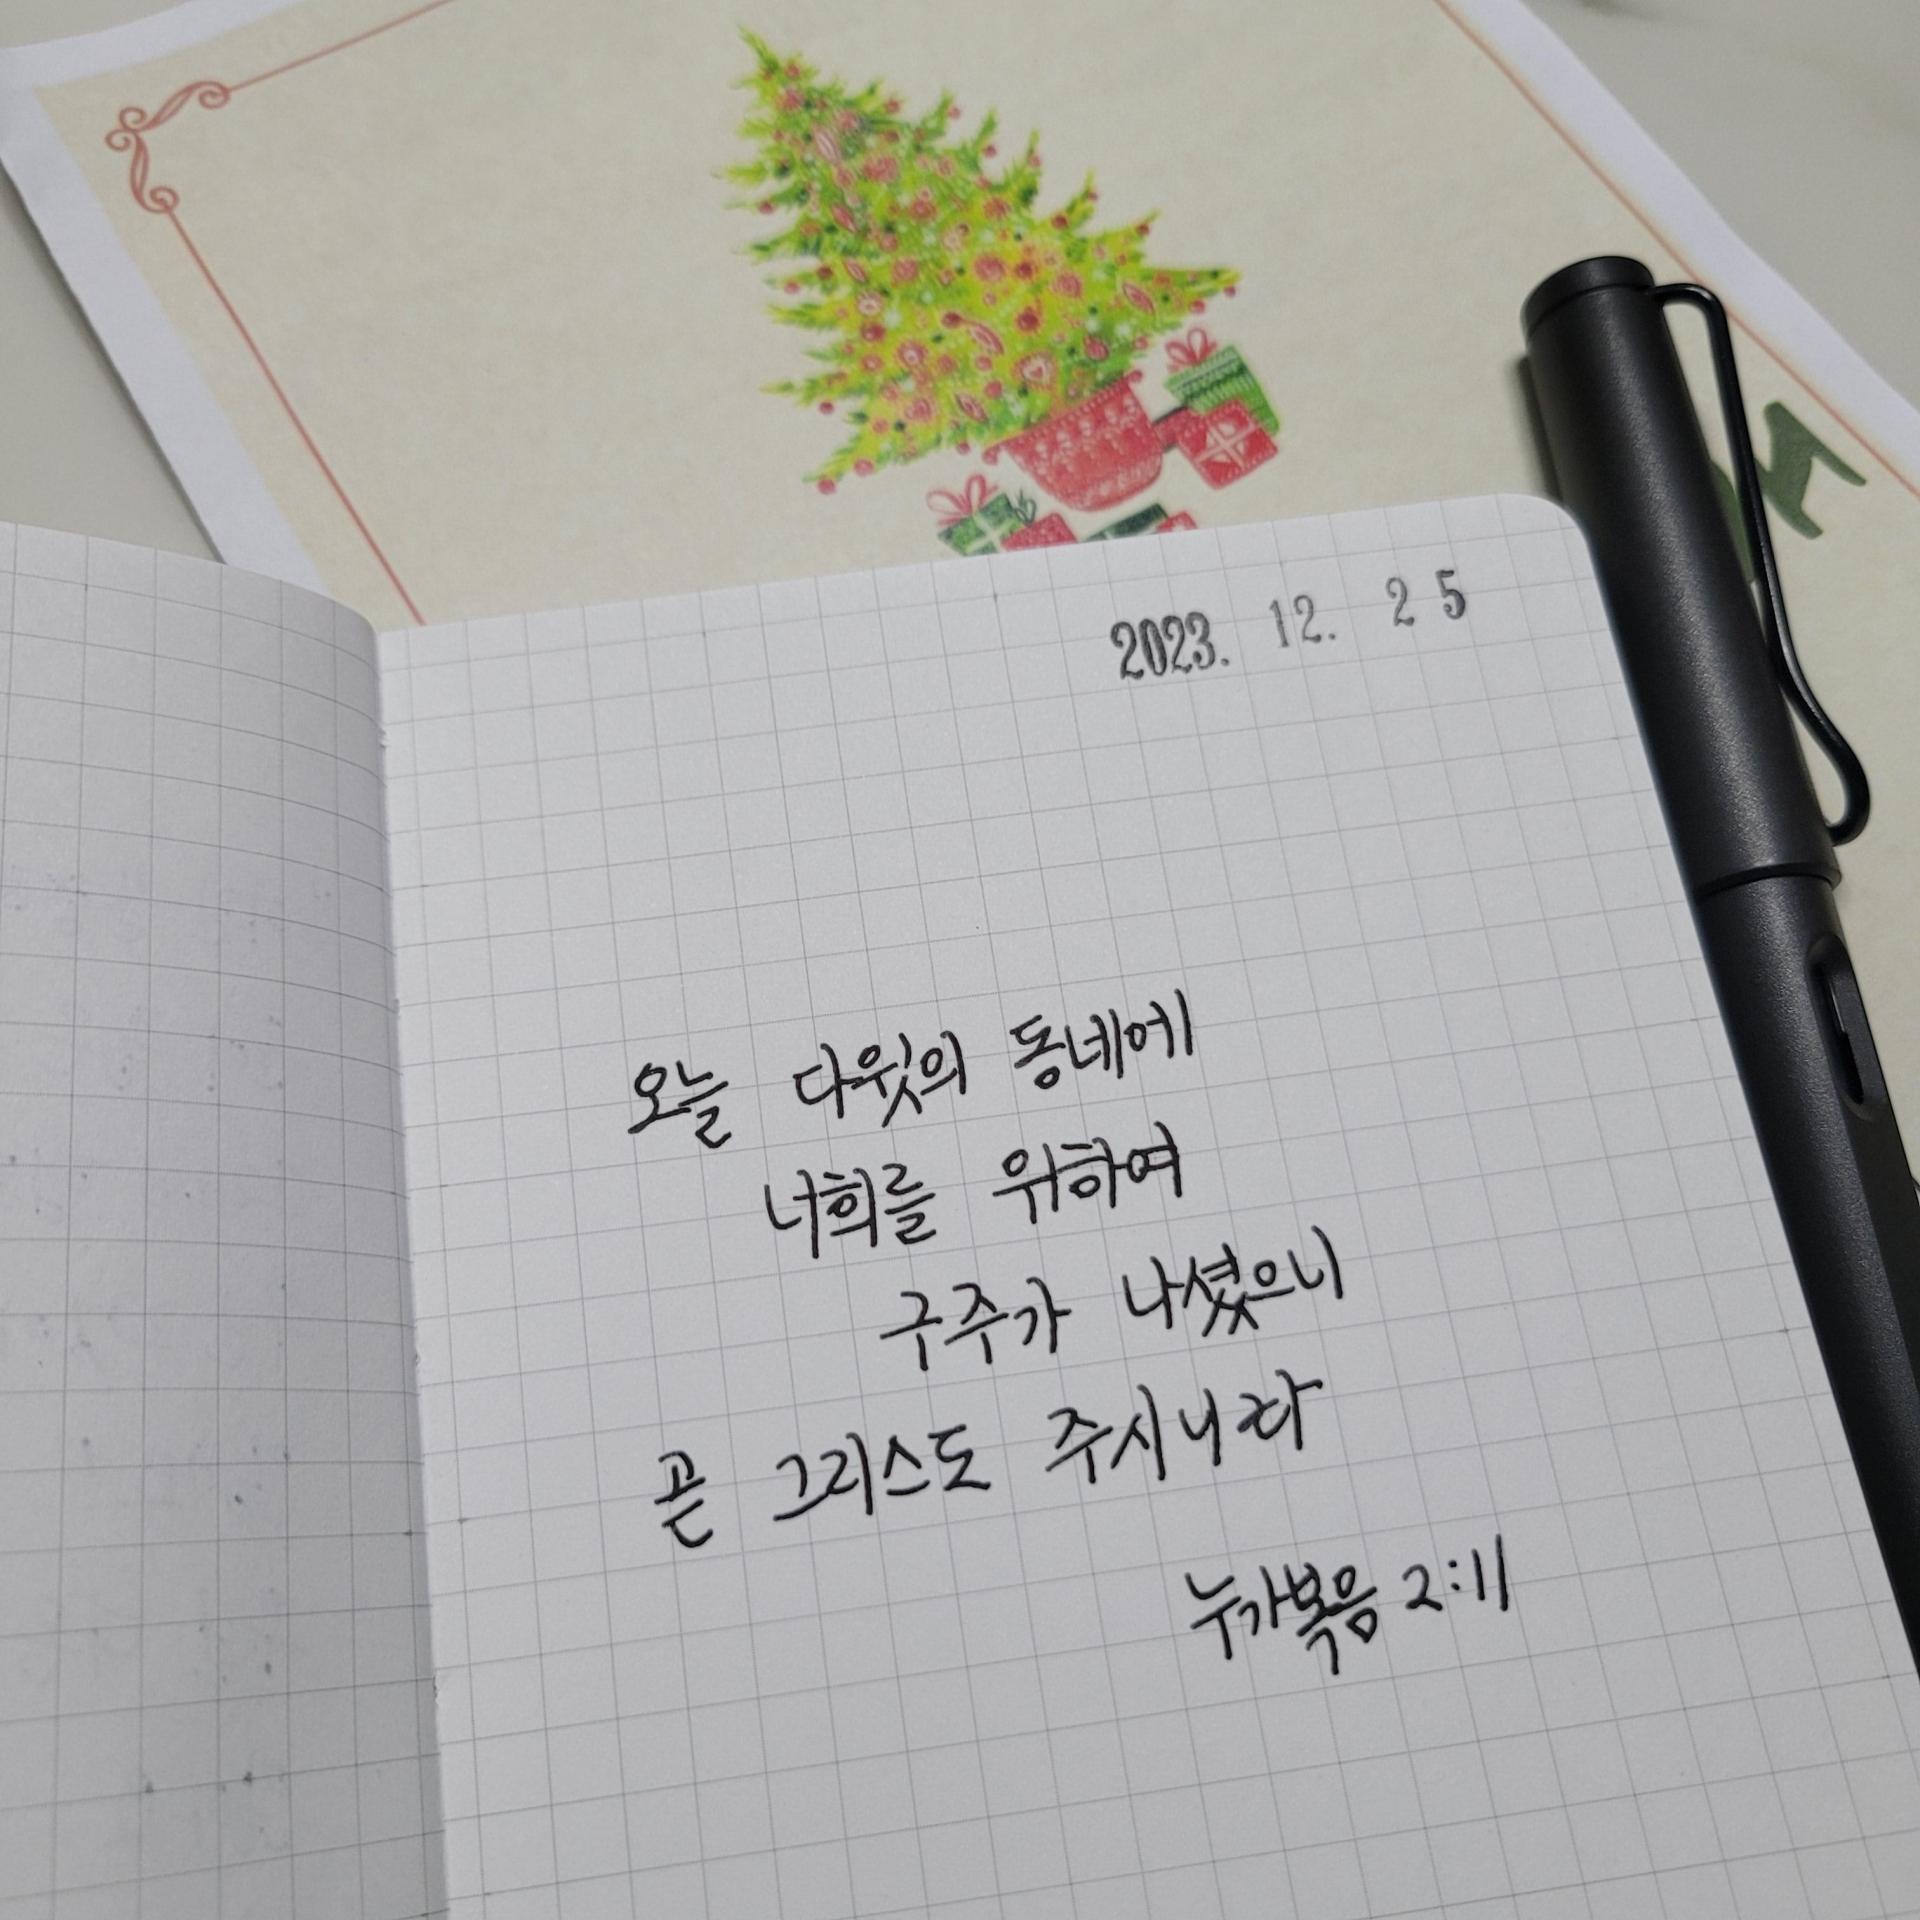 2023. 12. 25
오늘 다윗의 동네에
너희를 위하여
구주가 나셨으니
곧 그리스도 주시니라
누가복음 2:11